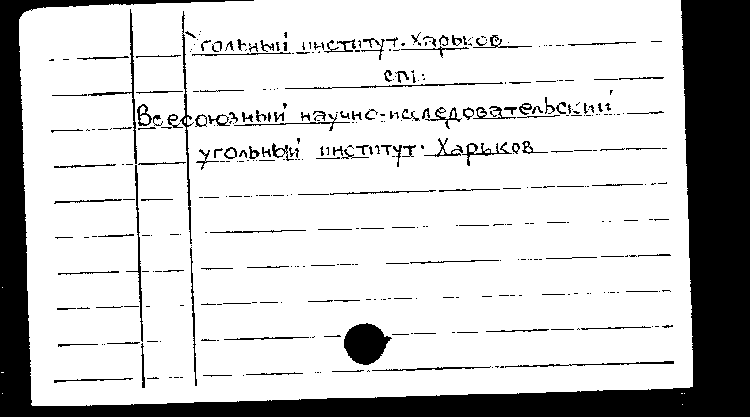 Угольный институт. Харьков
см:
Всесоюзный научно-исследовательский
угольный институт. Харьков